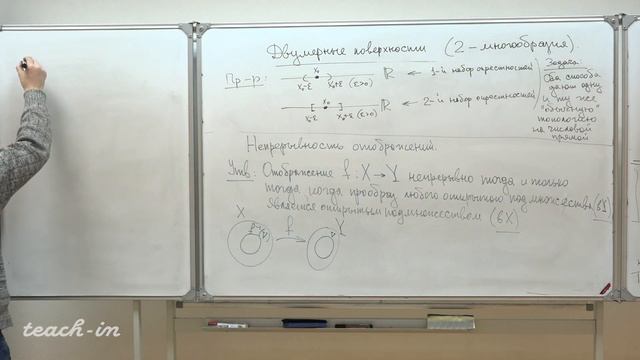 Двумерные поверхности (2-многообразия).
Пр-р:
x₀
x₀-ε x₀+ε (ε>0)
ℝ ← 1-й набор окрестностей
x₀
x₀-ε x₀+ε (ε>0)
ℝ ← 2-й набор окрестностей
Задача:
Оба способа
дают одну
и ту же
"обычную"
топологию
на числовой
прямой
Непрерывность отображений.
Утв: Отображение f: X → Y непрерывно тогда и только
тогда, когда прообраз любого открытого подмножества (в Y)
является открытым подмножеством (в X)
X f Y
teach-in